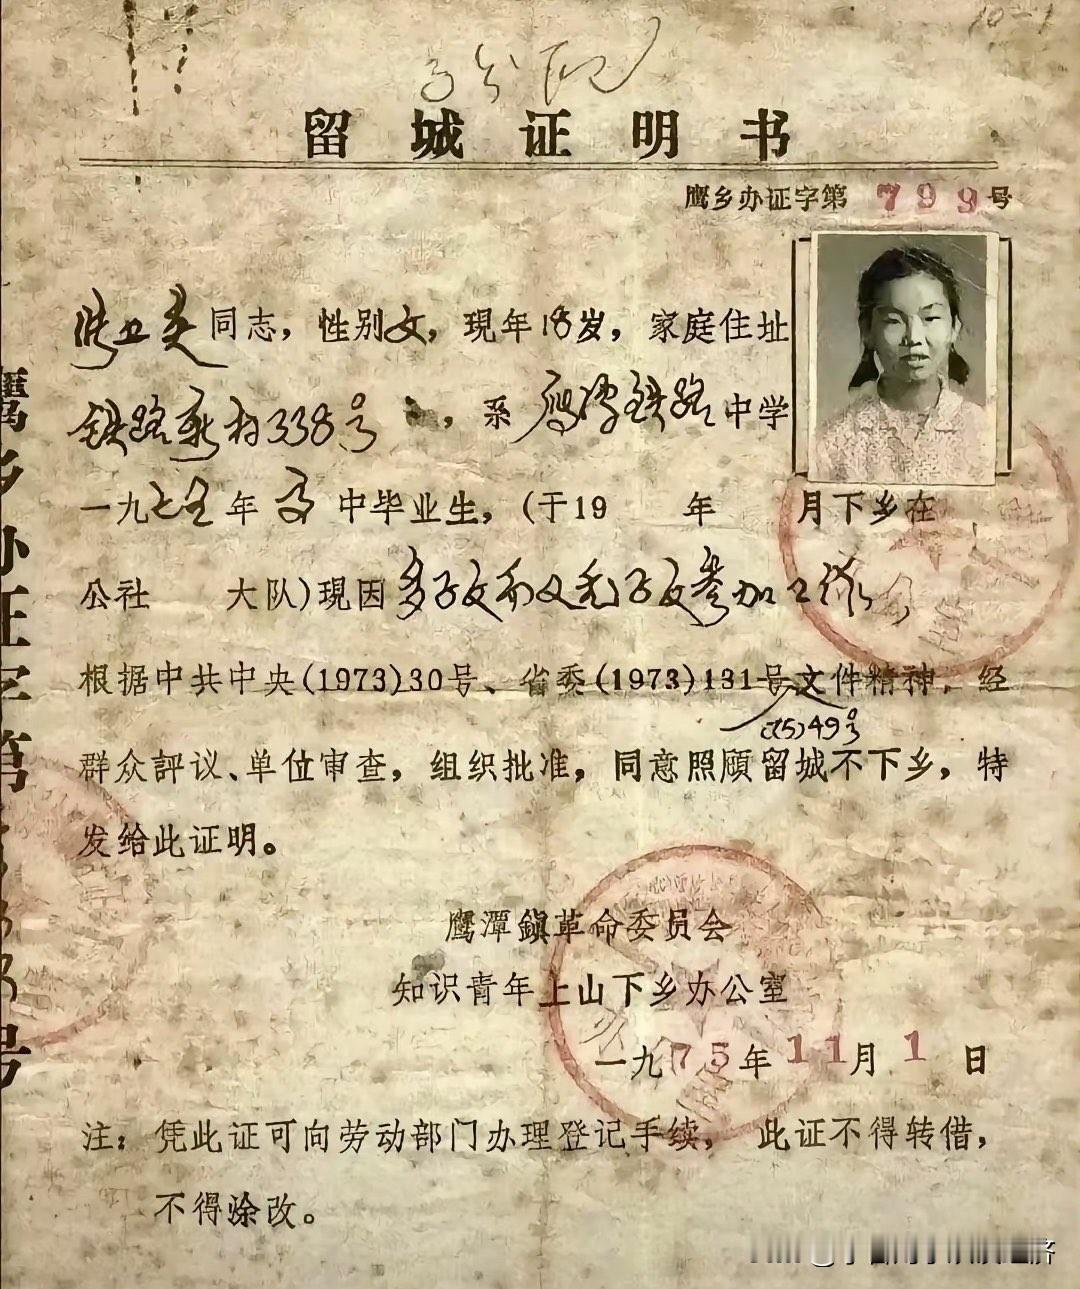 10-1
留城证明书
鹰乡办证字第799号
张卫英同志，性别女，現年18岁，家庭住址
铁路新村338号，系鹰潭铁路中学
一九七五年高中毕业生，(于19 年 月下乡在
公社 大队)现因多子女而又无子女参加工作
根据中共中央(1973)30号、省委(1973)131号文件精神，经
(75)49号
群众評议、单位审查，组织批准，同意照顾留城不下乡，特
发给此证明。
鹰潭鎮革命委员会
知识青年上山下乡办公室
一九75年11月1日
注：凭此证可向劳动部门办理登记手续，此证不得转借，
不得涂改。
鹰乡办证字第
号